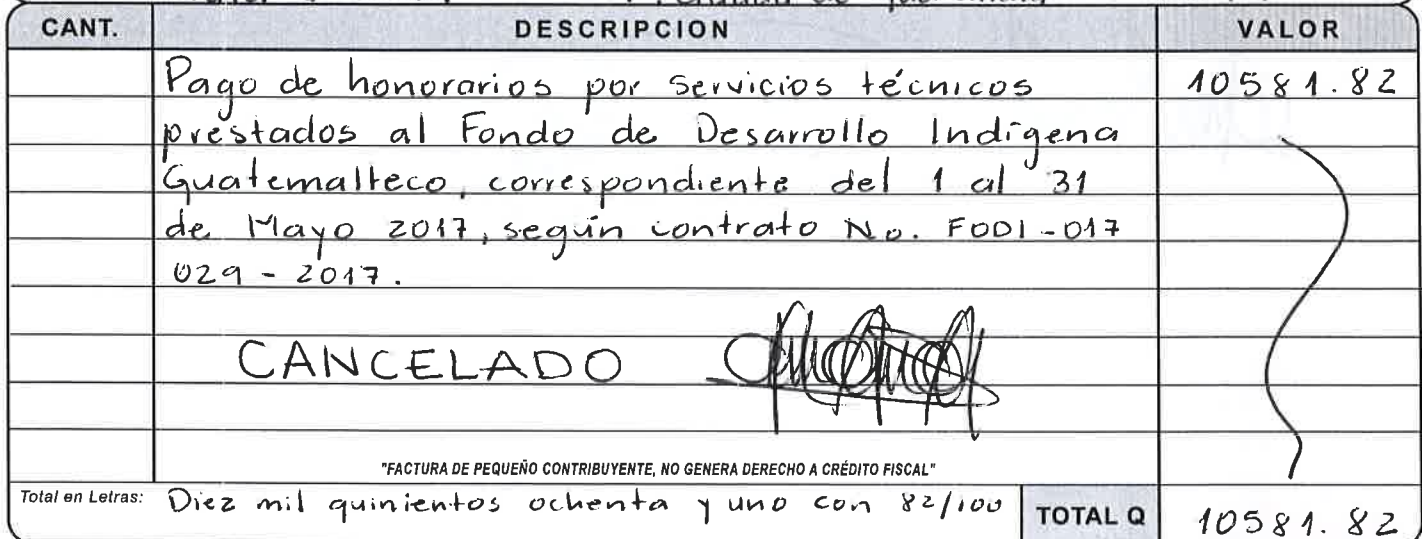 CANT. DESCRIPCION VALOR
Pago de honorarios por servicios técnicos 10581.82
prestados al Fondo de Desarrollo Indígena
Guatemalteco, correspondiente del 1 al 31
de Mayo 2017, según contrato No. FODI-017
029-2017.
CANCELADO
"FACTURA DE PEQUEÑO CONTRIBUYENTE, NO GENERA DERECHO A CRÉDITO FISCAL"
Total en Letras: Diez mil quinientos ochenta y uno con 82/100 TOTAL Q 10581.82